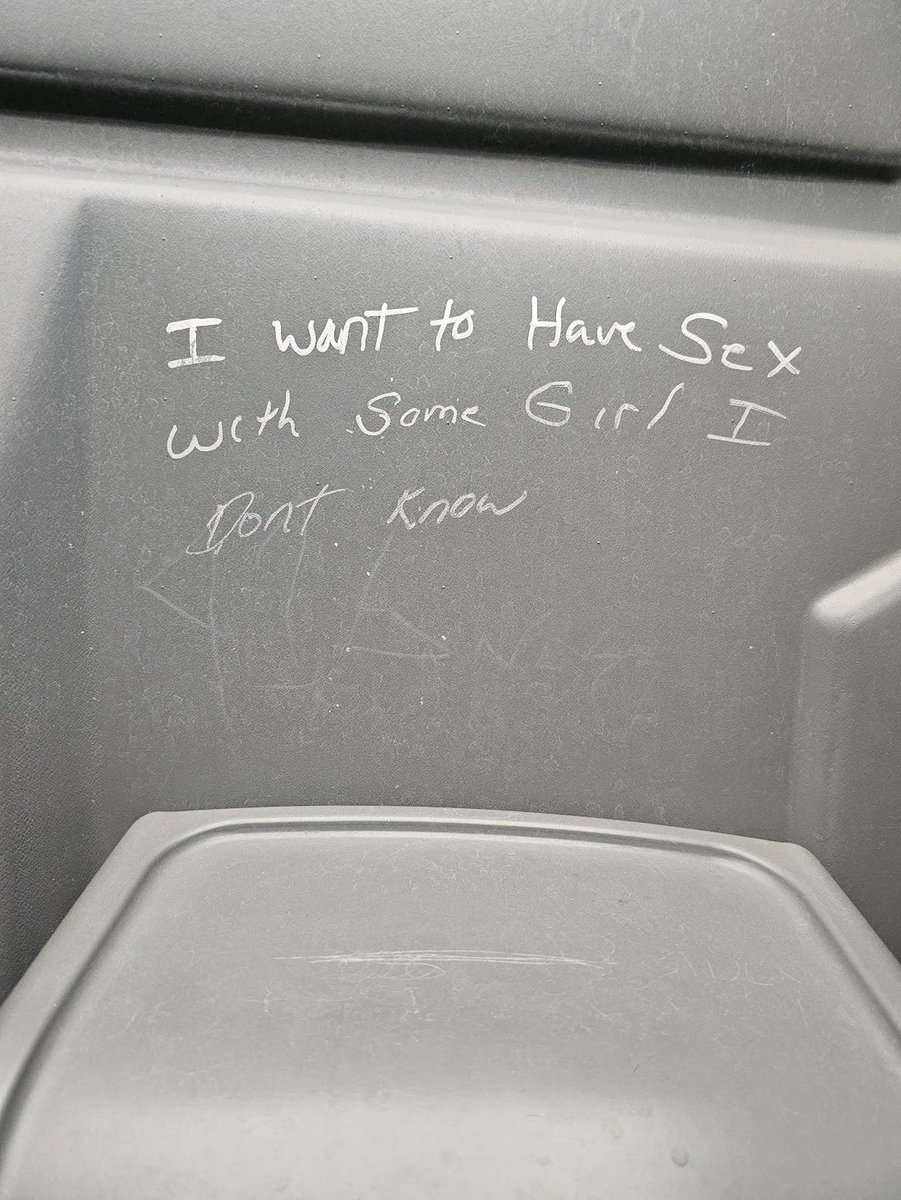 I want to Have Sex
with Some Girl I
Dont Know